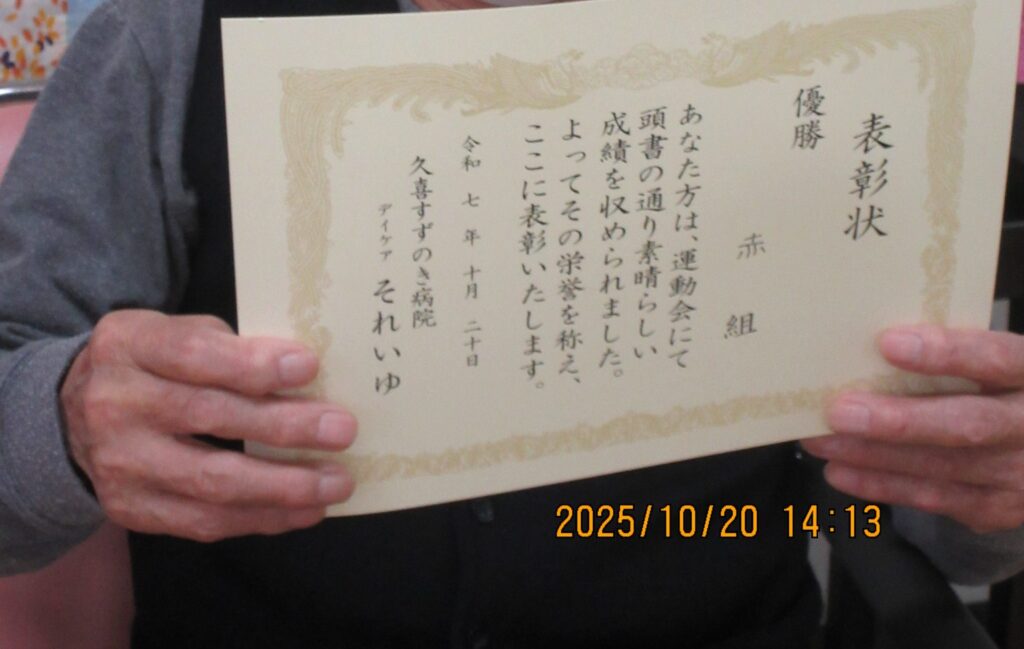 表彰状
優勝
赤組
あなた方は、運動会にて
頭書の通り素晴らしい
成績を収められました。
よってその栄誉を称え、
ここに表彰いたします。
令和 七 年 十月 二十日
久喜すずのき病院
デイケア それいゆ
2025/10/20 14:13